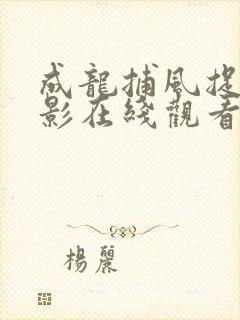 成龍捕風捉
影在綫觀看
楊麗